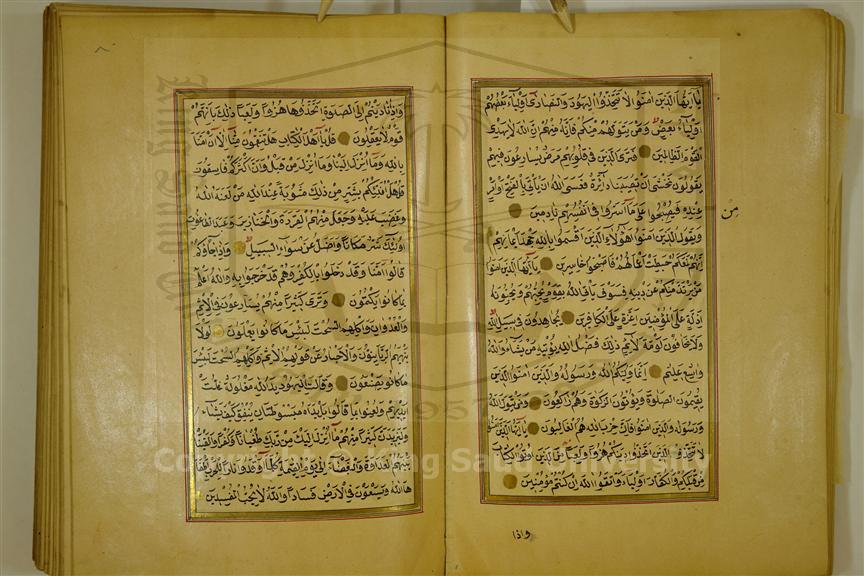 يا ايها الذين امنوا لا تتخذوا اليهود والنصارى اولياء بعضهم
اولياء بعض ومن يتولهم منكم فانه منهم ان الله لا يهدى
القوم الظالمين فترى الذين فى قلوبهم مرض يسارعون فيهم
يقولون نخشى ان تصيبنا دائرة فعسى الله ان يأتى بالفتح او امر
من
عنده فيصبحوا على ما اسروا فى انفسهم نادمين
ويقول الذين امنوا اهؤلاء الذين اقسموا بالله جهد ايمانهم
انهم لمعكم حبطت اعمالهم فاصبحوا خاسرين يا ايها الذين امنوا
من يرتد منكم عن دينه فسوف يأتى الله بقوم يحبهم ويحبونه
اذلة على المؤمنين اعزة على الكافرين يجاهدون فى سبيل الله
ولا يخافون لومة لائم ذلك فضل الله يؤتيه من يشاء والله
واسع عليم انما وليكم الله ورسوله والذين امنوا الذين
يقيمون الصلوة ويؤتون الزكوة وهم راكعون ومن يتول الله
ورسوله والذين امنوا فان حزب الله هم الغالبون يا ايها الذين امنوا
لا تتخذوا الذين اتخذوا دينكم هزوا ولعبا من الذين اوتوا الكتاب
من قبلكم والكفار اولياء واتقوا الله ان كنتم مؤمنين
واذا
واذا ناديتم الى الصلوة اتخذوها هزوا ولعبا ذلك بانهم
قوم لا يعقلون قل يا اهل الكتاب هل تنقمون منا الا ان امنا
بالله وما انزل الينا وما انزل من قبل وان اكثركم فاسقون
قل هل انبئكم بشر من ذلك مثوبة عند الله من لعنه الله
وغضب عليه وجعل منهم القردة والخنازير وعبد الطاغوت
اولئك شر مكانا واضل عن سواء السبيل واذا جاؤكم
قالوا امنا وقد دخلوا بالكفر وهم قد خرجوا به والله اعلم
بما كانوا يكتمون وترى كثيرا منهم يسارعون فى الاثم
والعدوان واكلهم السحت لبئس ما كانوا يعملون لولا
ينهيهم الربانيون والاحبار عن قولهم الاثم واكلهم السحت لبئس
ما كانوا يصنعون وقالت اليهود يد الله مغلولة غلت
ايديهم ولعنوا بما قالوا بل يداه مبسوطتان ينفق كيف يشاء
وليزيدن كثيرا منهم ما انزل اليك من ربك طغيانا وكفرا والقينا
بينهم العداوة والبغضاء الى يوم القيمة كلما اوقدوا نارا للحرب اطفا
ها الله ويسعون فى الارض فسادا والله لا يحب المفسدين
Copyright © King Saud University
1957